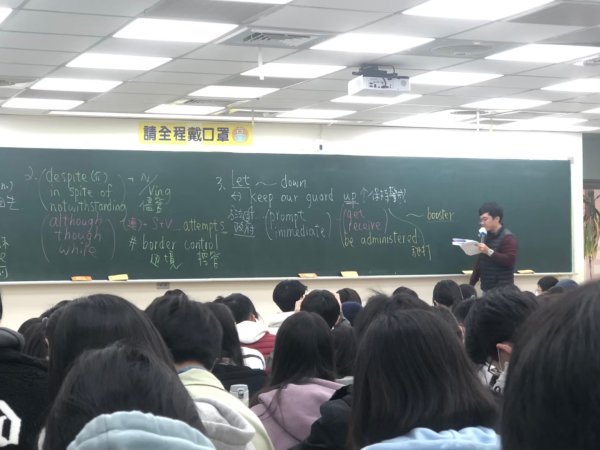 請全程戴口罩
2. despite (介) + N/
in spite of Ving
notwithstanding 儘管
although
though (連) + S+V... attempts
while
# border control
邊境 控管
3. let ~ down
↔ keep our guard up 个保持警戒
prompt
immediate
政府
get
receive ~ booster
be administered